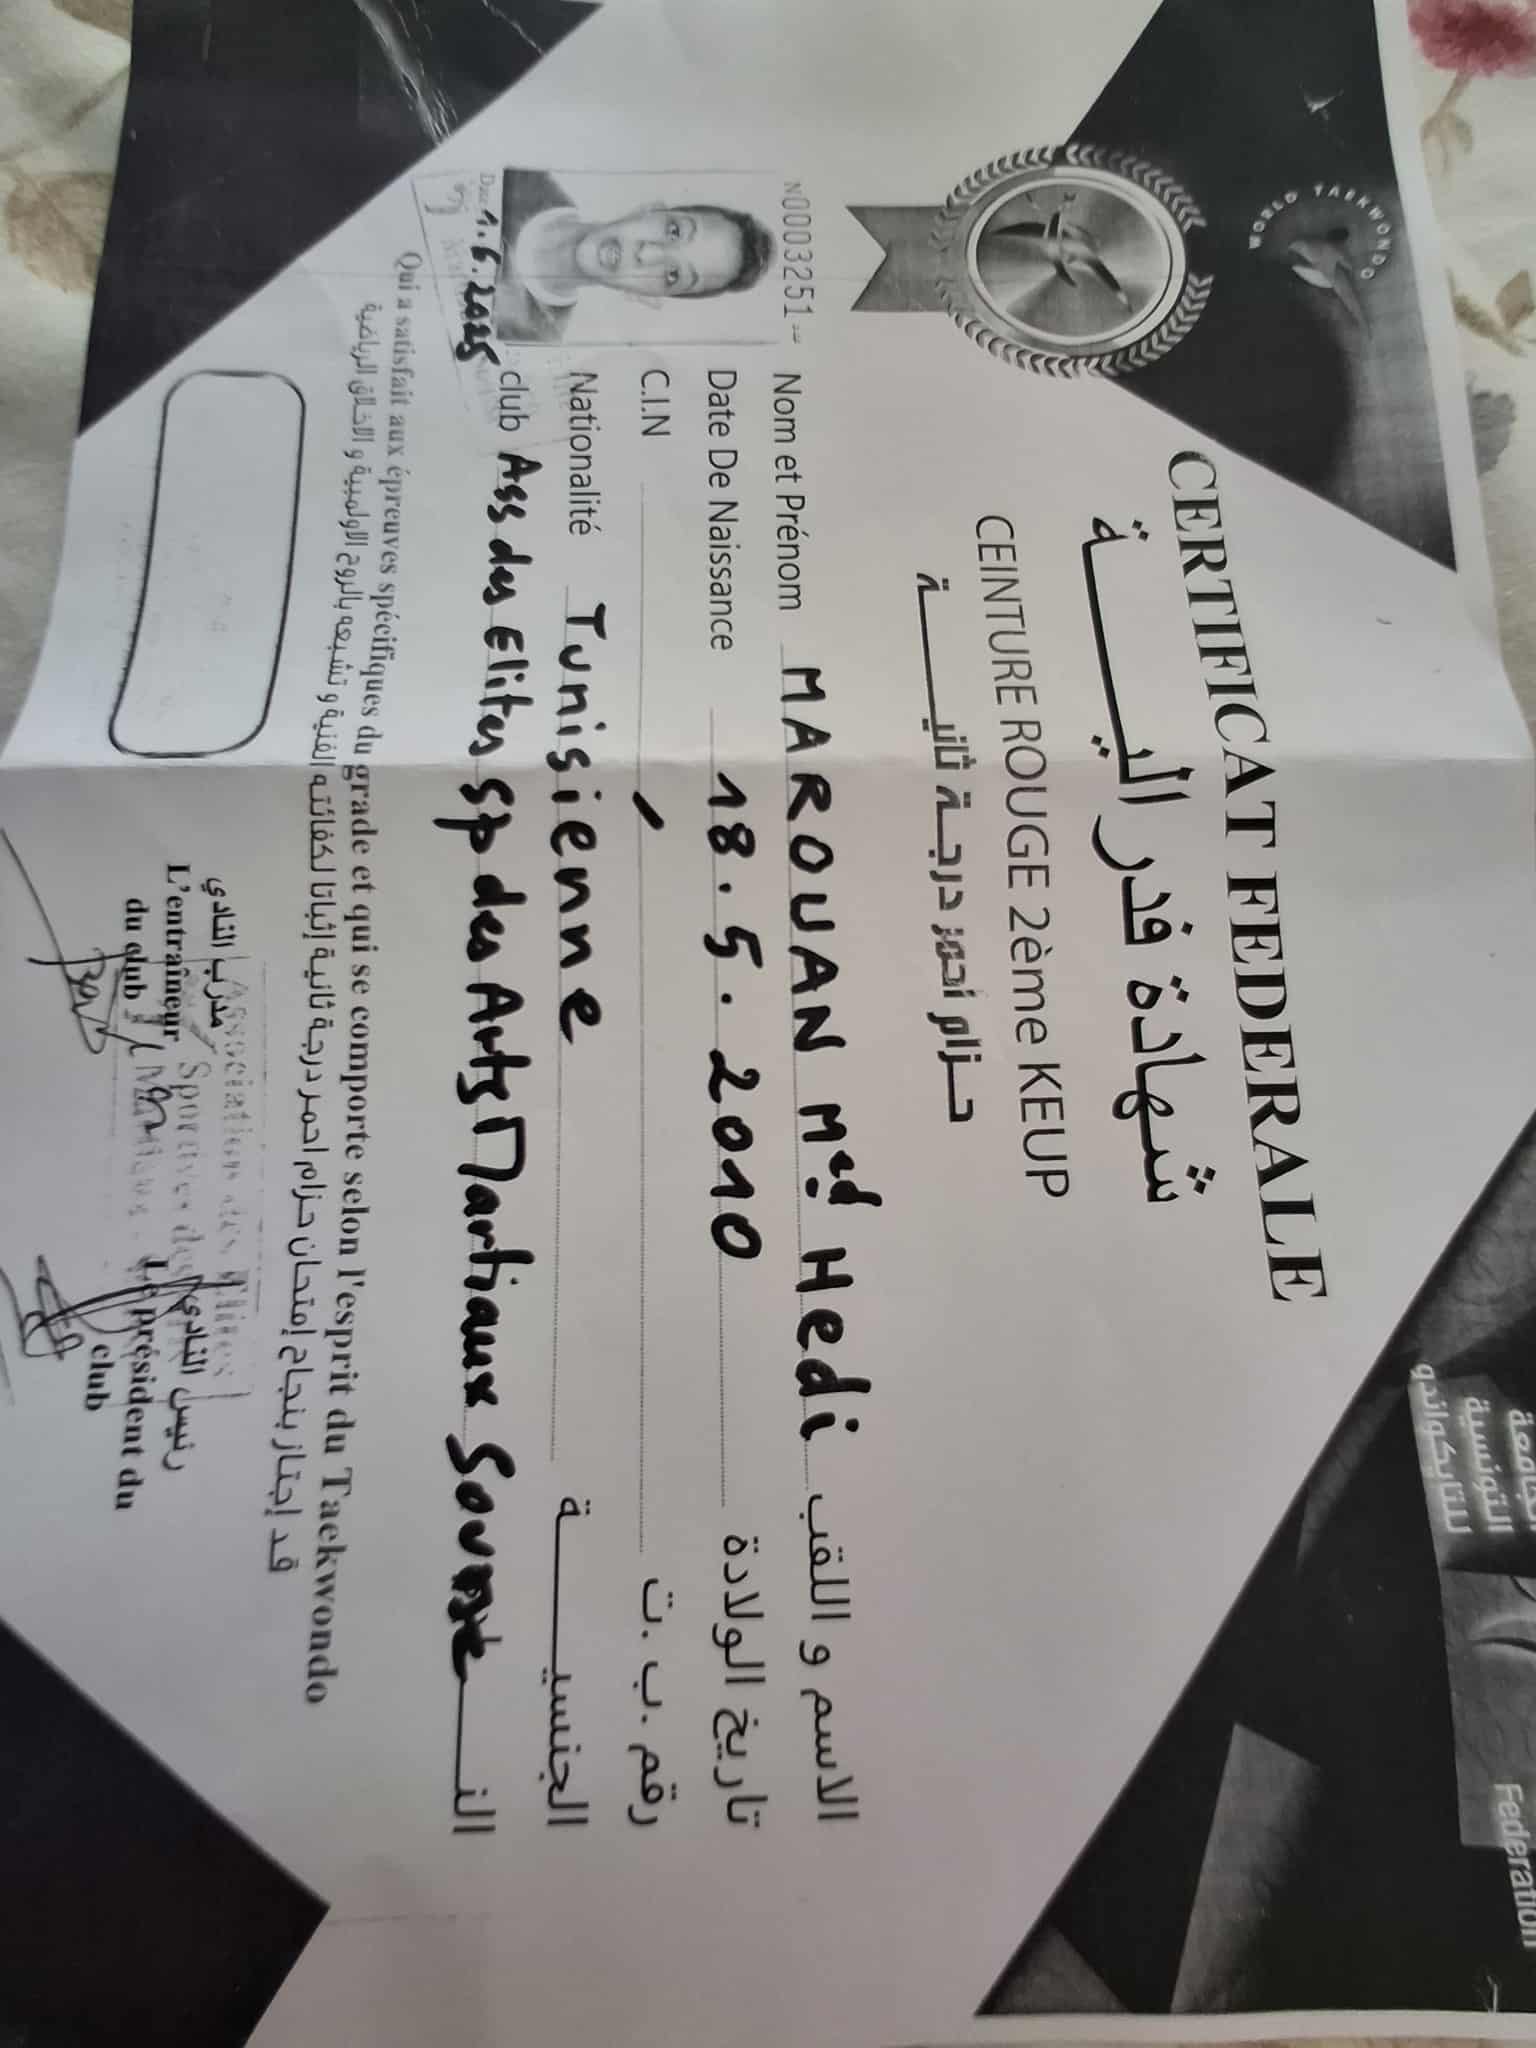 WORLD TAEKWONDO
التونسية
للتايكواندو
Federation
CERTIFICAT FEDERALE
شهادة فدراليـــــة
CEINTURE ROUGE 2ème KEUP
حـزام أحمر درجـة ثانيـــــة
N0003251
Nom et Prénom MAROUAN Med Hedi الاسم و اللقب
Date De Naissance 18.5.2010 تاريخ الولادة
C.I.N رقم .ب .ت
Nationalité Tunisienne الجنسيـــــة
club Ass des Elites Sp des Arts Martiaux Sousse
1.6.2025
Qui a satisfait aux épreuves spécifiques du grade et qui se comporte selon l'esprit du Taekwondo
قد إجتاز بنجاح إمتحان حزام احمر درجة ثانية إثباتا لكفائته الفنية و تشبعه بالروح الاولمبية و الاخلاق الرياضية
مدرب النادي
L'entraîneur
du club
رئيس النادي
Le président du
club
Association des Elites
Sportives des